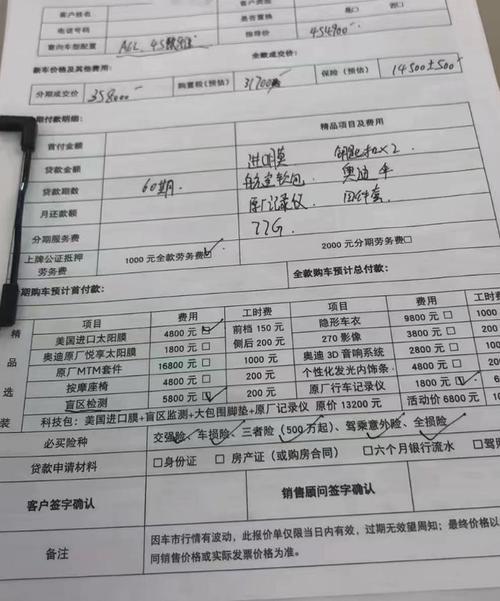 客户姓名 客户类型
电话号码 是否置换
意向车型配置 A6L 45 指导价 454900
新车价格及其他费用： 全款成交价：
分期成交价 358000 购置税（预估） 31700 保险（预估） 14500±500
期付款明细：
首付金额 精品项目及费用
贷款金额 进口膜 钥匙扣×2
贷款期数 60期 航空软包 奥迪伞
月还款额 原厂记录仪 四件套
分期服务费 77G
上牌公证抵押劳务费 1000 元全款劳务费☑ 2000 元分期劳务费□
期购车预计首付款： 全款购车预计总付款：
精品选装
项目 费用 工时费 项目 费用 工时费
美国进口太阳膜 4800 元☑ 前档 150 元 隐形车衣 9800 元□
奥迪原厂悦享太阳膜 1800 元□ 侧后 200 元 270 影像 3800 元□
原厂MTM套件 16800 元□ 1000 元 奥迪 3D 音响系统 2800 元□
按摩座椅 4800 元□ 200 元 个性化发光内饰条 4800 元□
盲区检测 5800 元☑ 200 元 原厂行车记录仪 1800 元☑
科技包：美国进口膜+盲区监测+大包围脚垫+原厂记录仪 原价 13200 元 活动价 6800 元
必买险种 交强险、车损险、三者险（500 万起）、驾乘意外险、全损险
贷款申请材料 □身份证 □ 房产证（或购房合同） □六个月银行流水 □驾
客户签字确认 销售顾问签字确认
备注 因车市行情有波动，此报价单仅限当日内有效，过期无效望周知；最终价格以
同销售价格或实际发票价格为准。